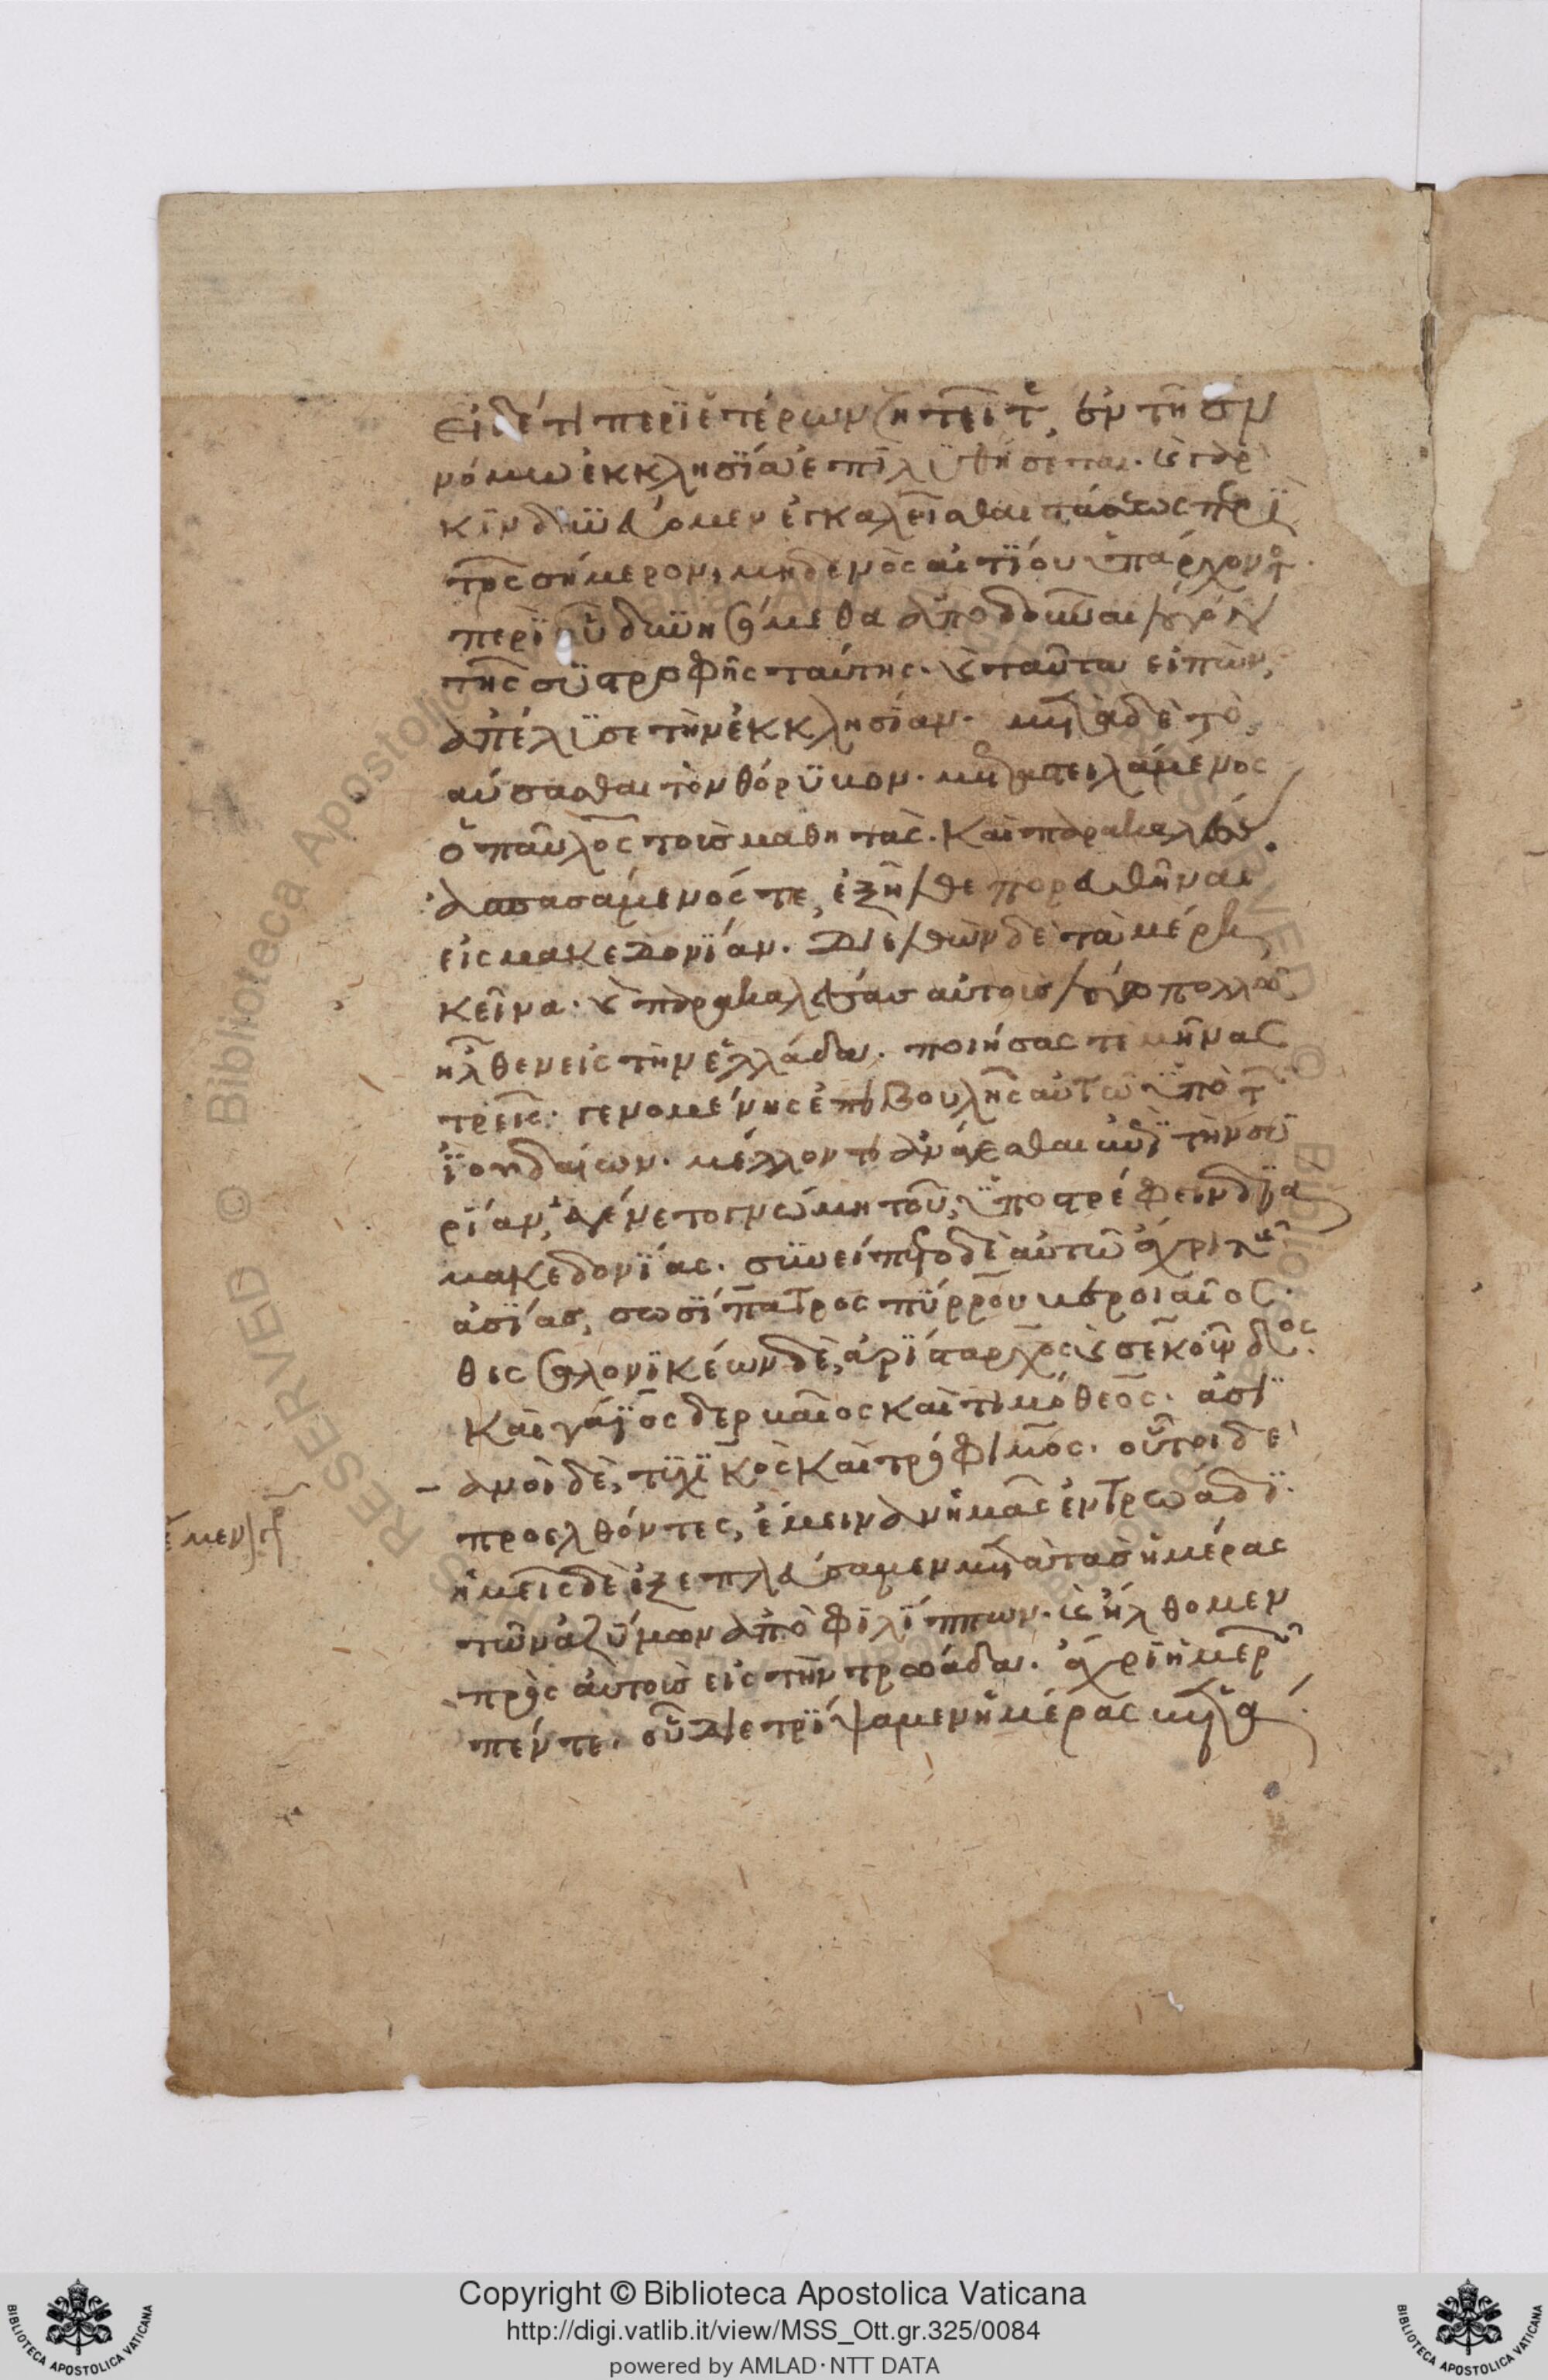 εἰ δέ τι περὶ ἑτέρων ζητεῖτε, ἐν τῆ ἐν
νόμω ἐκκλησία ἐπιλυθήσεται. καὶ γὰρ
κινδυνεύομεν ἐγκαλεῖσθαι στάσεως περὶ
τῆς σήμερον, μηδενὸς αἰτίου ὑπάρχοντος
περὶ οὗ δυνησόμεθα ἀποδοῦναι λόγον
τῆς συστροφῆς ταύτης. καὶ ταῦτα εἰπὼν,
ἀπέλυσε τὴν ἐκκλησίαν. μετὰ δὲ τὸ
παύσασθαι τὸν θόρυβον. μεταστειλάμενος
ὁ παῦλος τοὺς μαθητάς. καὶ παρακαλέσας
ἀσπασάμενός τε, ἐξῆλθε πορευθῆναι
εἰς μακεδονίαν. διελθὼν δὲ τὰ μέρη
κεῖνα. καὶ παρακαλέσας αὐτοὺς λόγω πολλῶ
ἦλθεν εἰς τὴν ἑλλάδα. ποιήσας τε μῆνας
τρεῖς. γενομένης ἐπιβουλῆς αὐτῶ ὑπὸ τῶν
ἰουδαίων. μέλλοντι ἀνάγεσθαι εἰς τὴν συ
ρίαν, ἐγένετο γνώμη τοῦ, ὑποστρέφειν διὰ
μακεδονίας. συνείπετο δὲ αὐτῶ ἄχρι τῆς
ἀσίας, σωσίπατρος πύρρου βεροιαῖος.
θεσσαλονικέων δὲ, ἀρίσταρχος καὶ σεκοῦνδος.
καὶ γάϊος δερβαῖος καὶ τιμόθεος. ἀσι
ανοὶ δὲ, τυχικὸς καὶ τρόφιμος. οὗτοι δὲ
προελθόντες, ἔμεινον ἡμᾶς ἐν τρωάδι.
ἡμεῖς δὲ ἐξεπλεύσαμεν μετὰ τὰς ἡμέρας
τῶν ἀζύμων ἀπὸ φιλίππων. καὶ ἤλθομεν
πρὸς αὐτοὺς εἰς τὴν τρωάδα. ἄχρι ἡμερῶν
πέντε. οὗ διετρίψαμεν ἡμέρας
Copyright © Biblioteca Apostolica Vaticana
http://digi.vatlib.it/view/MSS_Ott.gr.325/0084
powered by AMLAD·NTT DATA